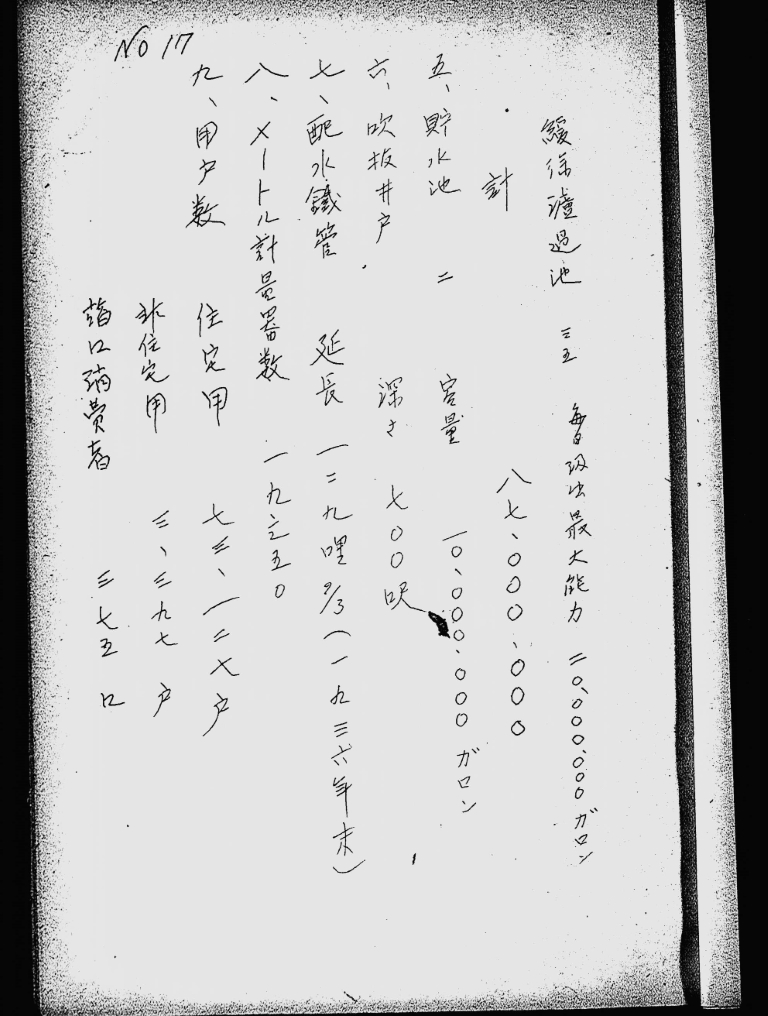 NO 17
緩徐濾過池 三五 每日 最大能力 二〇、〇〇〇、〇〇〇 ガロン
計 八七、〇〇〇、〇〇〇
五、貯水池 二 容量 一〇、〇〇〇、〇〇〇 ガロン
六、吹抜井戸 深さ 七〇〇呎
七、配水鐵管 延長 一二九哩 2/3 (一九三六年末)
八、メートル計量器数 一九、三五〇
九、用戸数 住宅用 七三、一二七戸
非住宅用 三、三九七戸
口消費者 三七五口